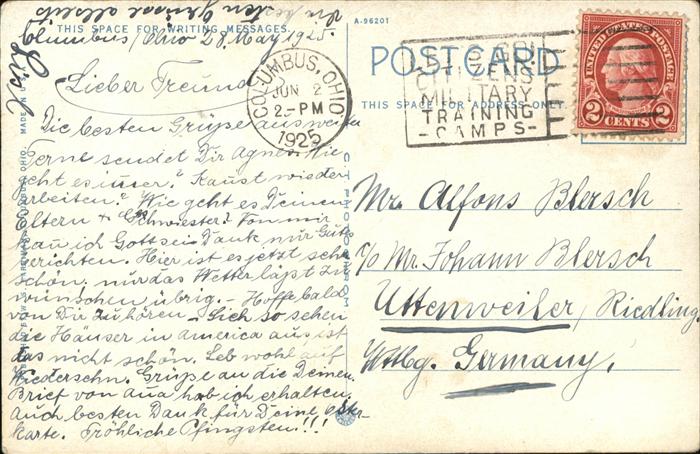 Die besten Grüsse allseits
THIS SPACE FOR WRITING MESSAGES.
Columbus/Ohio 28. May 1925.
Lieber Freund
Die besten Grüße aus weiter
Ferne sendet Dir Agnes. Wie
geht es immer? Kannst wieder
arbeiten? Wie geht es Deinen
Eltern & Schwiester? Von mir
kan ich Gott sei Dank nur Gutes
berichten. Hier ist es jetzt sehr
schön, nur das Wetter läßt zu
wünschen übrig. – Hoffe bald
von Dir zu hören – Sieh so sehen
die Häuser in America aus, ist
das nicht schön. Leb wohl auf
Wiedersehn. Grüße an die Deinen
Brief von hab ich erhalten.
Auch besten Dank für Deine Oster-
karte. Fröhliche Pfingsten!!!
MADE IN U.S.A.
A-96201
POST CARD
THIS SPACE FOR ADDRESS ONLY
COLUMBUS, OHIO
JUN 2
2-PM
1925
CITIZENS
MILITARY
TRAINING
-CAMPS-
UNITED STATES POSTAGE
2 CENTS 2
Mr. Alfons Blersch
c/o Mr. Johann Blersch
Uttenweiler, Riedling.
Wttbg. Germany.